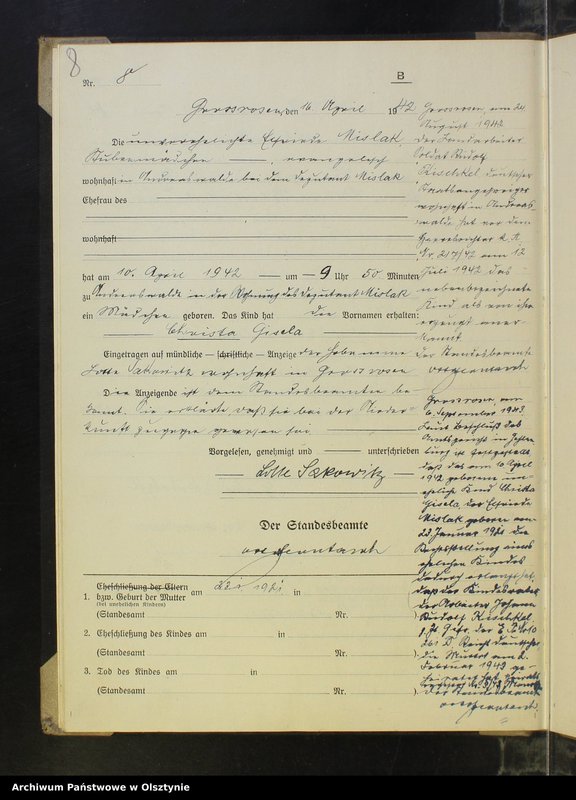 8
Nr. 8
B
Grossrosen, den 16. April 1942
Die unverehelichte Elfriede Mislak,
Stubenmädchen, evangelisch
wohnhaft in Andreaswalde bei dem Deputant Mislak
Ehefrau des
wohnhaft
hat am 10. April 1942 um 9 Uhr 50 Minuten
zu Andreaswalde in der Wohnung des Deputant Mislak
ein Mädchen geboren. Das Kind hat die Vornamen erhalten:
Christa Gisela
Eingetragen auf mündliche – schriftliche – Anzeige der Hebamme
Lotte Sakowitz wohnhaft in Grossrosen
Die Anzeigende ist dem Standesbeamten be-
kannt. Sie erklärte daß sie bei der Nieder-
kunft zugegen gewesen sei.
Vorgelesen, genehmigt und unterschrieben
Lotte Sakowitz
Der Standesbeamte
1. Eheschließung der Eltern
bzw. Geburt der Mutter am 1921 in
(bei unehelichen Kindern)
(Standesamt Nr. ).
2. Eheschließung des Kindes am in
(Standesamt Nr. ).
3. Tod des Kindes am in
(Standesamt Nr. ).
Grossrosen, am 24.
August 1942
Der Landarbeiter
Soldat Rudolf
deutscher
Staatsangehöriger
wohnhaft in Andreas-
walde hat vor dem
Nr. 217/42 am 12.
Juli 1942 das
nebenbezeichnete
Kind als von ihm
erzeugt aner-
kannt.
Der Standesbeamte
Grossrosen, am
6. September 1943.
Laut Beschluß des
Amtsgericht in
ist festgestellt
daß das am 10. April
1942 geborene un-
eheliche Kind Christa
Gisela, der Elfriede
Mislak geboren am
22. Januar 1921 die
Rechtsstellung eines
ehelichen Kindes
dadurch erlangt hat,
daß der Kindesvater
der Arbeiter Johann
Rudolf
die Mutter am 2.
Februar 1943 ge-
Der Standesbeamte
Archiwum Państwowe w Olsztynie